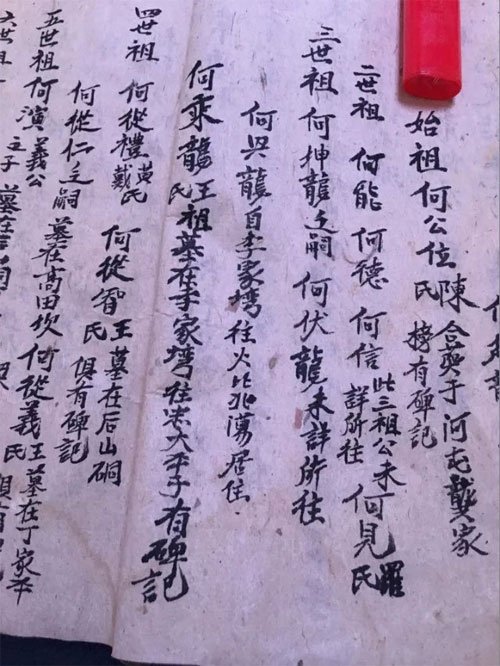 始祖何公位陳氏合葬于河屯龔家
榜有碑記
二世祖 何能 何德 何信 此三祖公未詳所往 何見羅氏
三世祖 何抻龍乏嗣 何伏龍未詳所往
何興龍自李家塆往火比北蕩居住
何乘龍王氏祖墓在李家塆往岩大平子有碑記
四世祖 何從禮黄氏戴
何從智王氏墓在后山硐俱有碑記
何從仁乏嗣墓在高田坎 何從義王氏墓在丁家平
五世祖 何演義公之子
六世祖